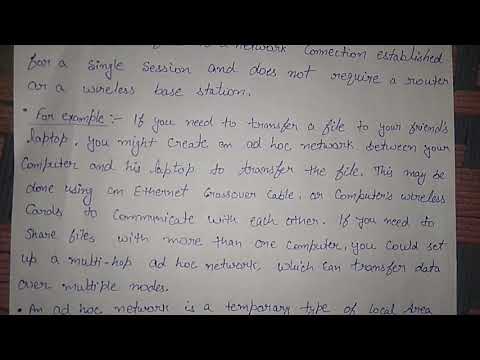 a network connection established
for a single session and does not require a router
or a wireless base station.
• For example :- If you need to transfer a file to your friend's
laptop, you might create an ad hoc network between your
computer and his laptop to transfer the file. This may be
done using an Ethernet crossover cable, or computer's wireless
cards to communicate with each other. If you need to
share files with more than one computer, you could set
up a multi-hop ad hoc network, which can transfer data
over multiple nodes.
• An ad hoc network is a temporary type of local Area